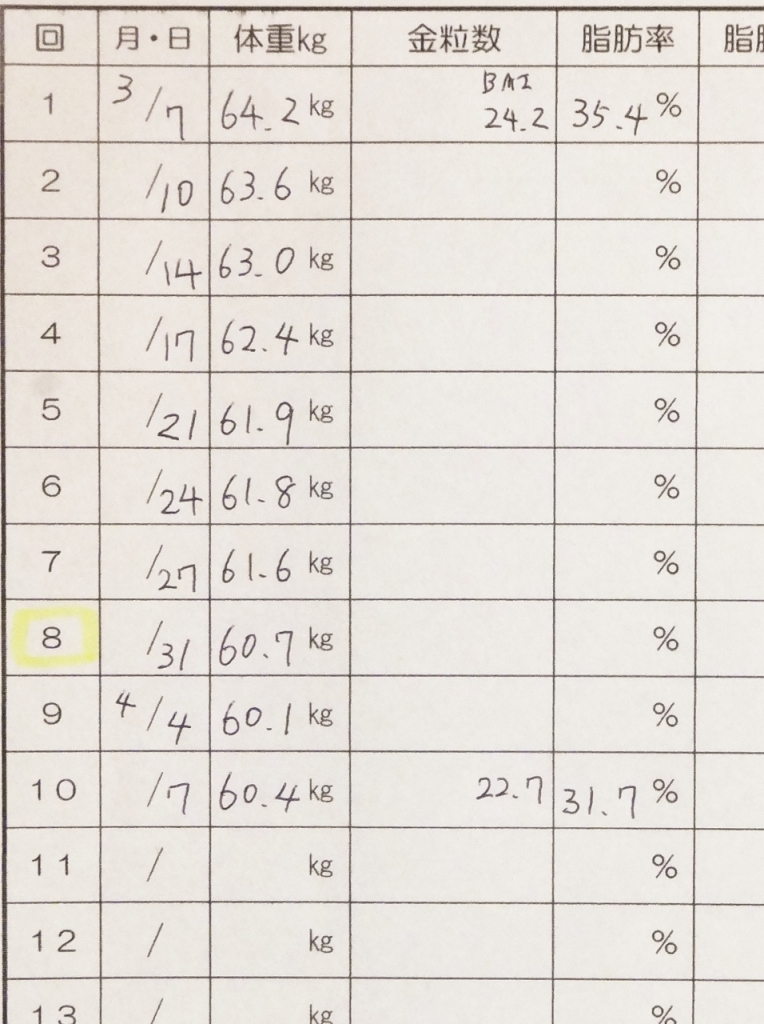 回 月・日 体重kg 金粒数 脂肪率
1 3/7 64.2 kg BMI 24.2 35.4 %
2 /10 63.6 kg %
3 /14 63.0 kg %
4 /17 62.4 kg %
5 /21 61.9 kg %
6 /24 61.8 kg %
7 /27 61.6 kg %
8 /31 60.7 kg %
9 4/4 60.1 kg %
10 /7 60.4 kg 22.7 31.7 %
11 / kg %
12 / kg %
13 / kg %